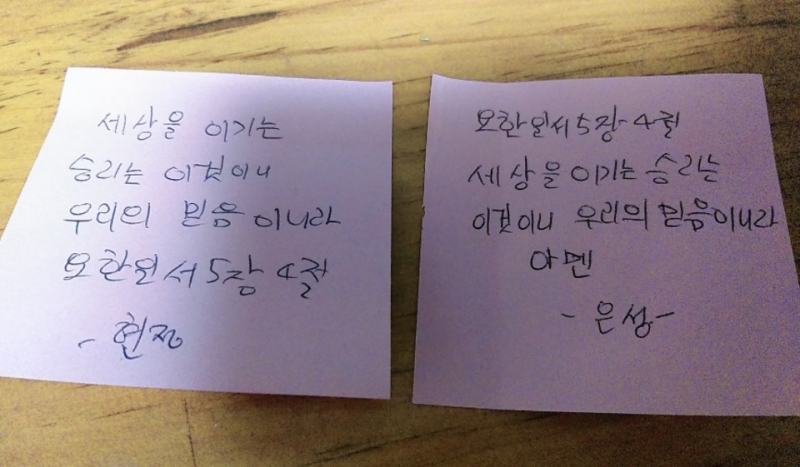 세상을 이기는
승리는 이것이니
우리의 믿음이니라
요한일서 5장 4절
- 현정
요한일서 5장 4절
세상을 이기는 승리는
이것이니 우리의 믿음이니라
아멘
- 은성 -